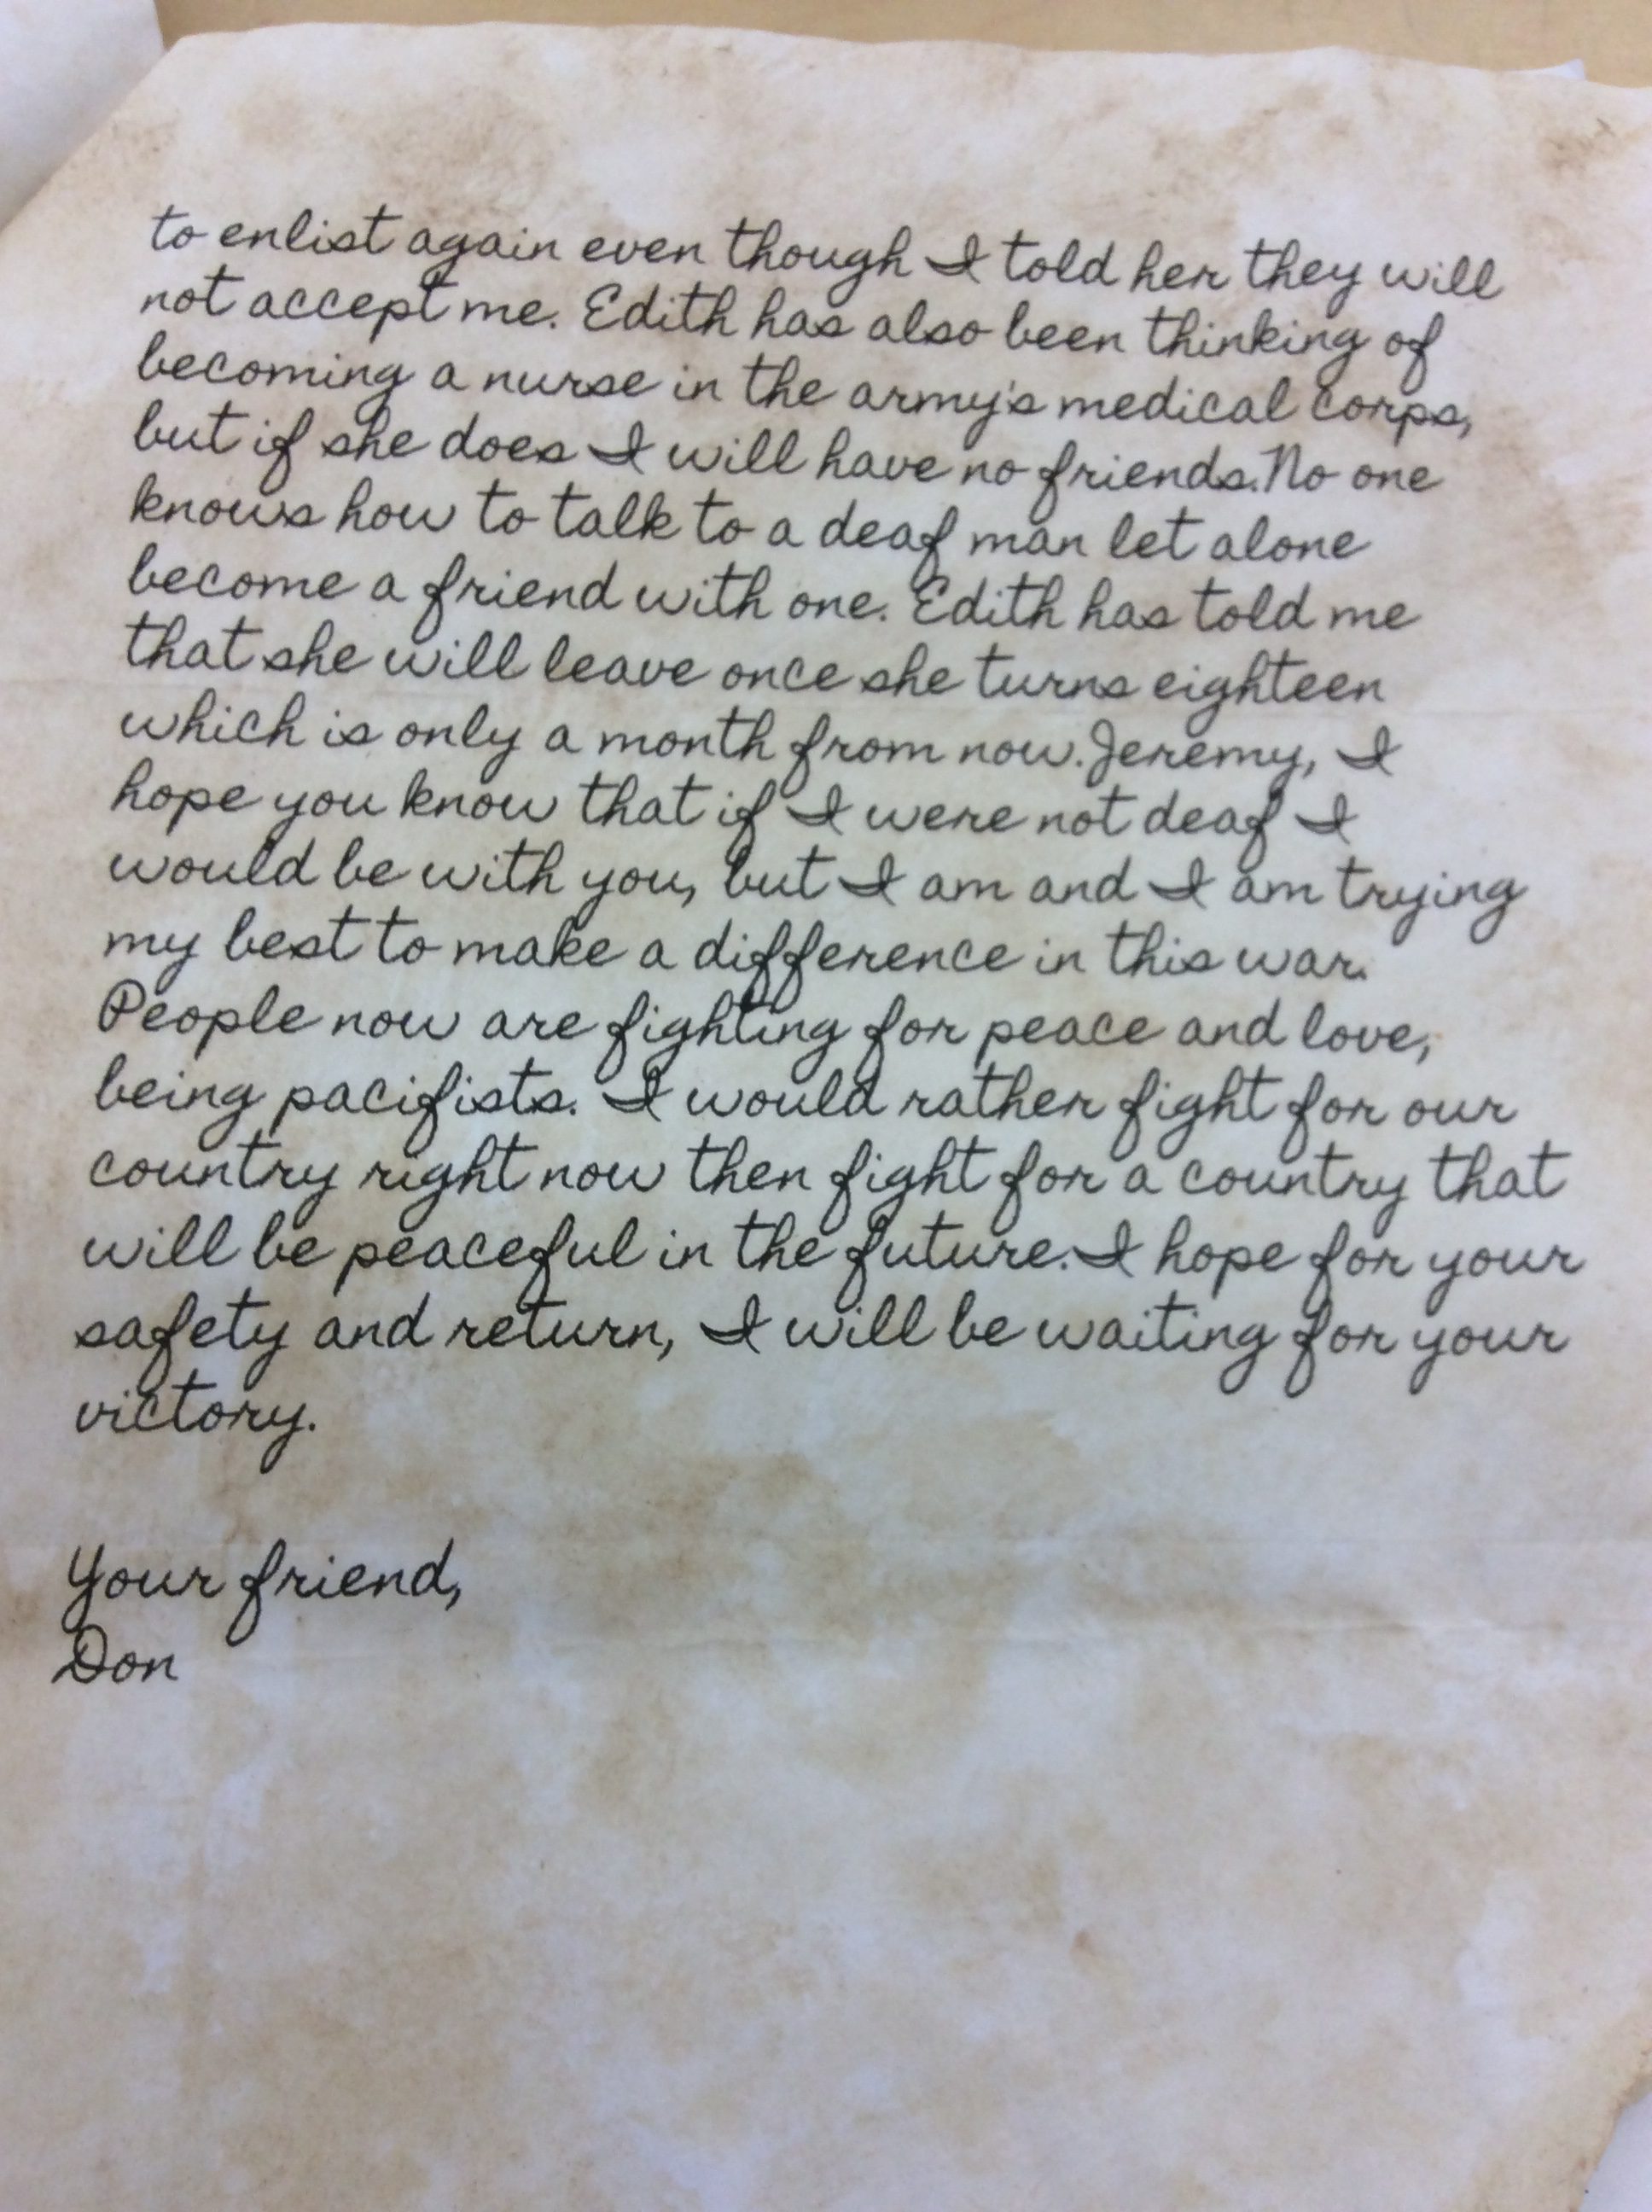 to enlist again even though I told her they will
not accept me. Edith has also been thinking of
becoming a nurse in the army's medical corps,
but if she does I will have no friends. No one
knows how to talk to a deaf man let alone
become a friend with one. Edith has told me
that she will leave once she turns eighteen
which is only a month from now. Jeremy, I
hope you know that if I were not deaf I
would be with you, but I am and I am trying
my best to make a difference in this war.
People now are fighting for peace and love,
being pacifists. I would rather fight for our
country right now then fight for a country that
will be peaceful in the future. I hope for your
safety and return, I will be waiting for your
victory.
Your friend,
Don